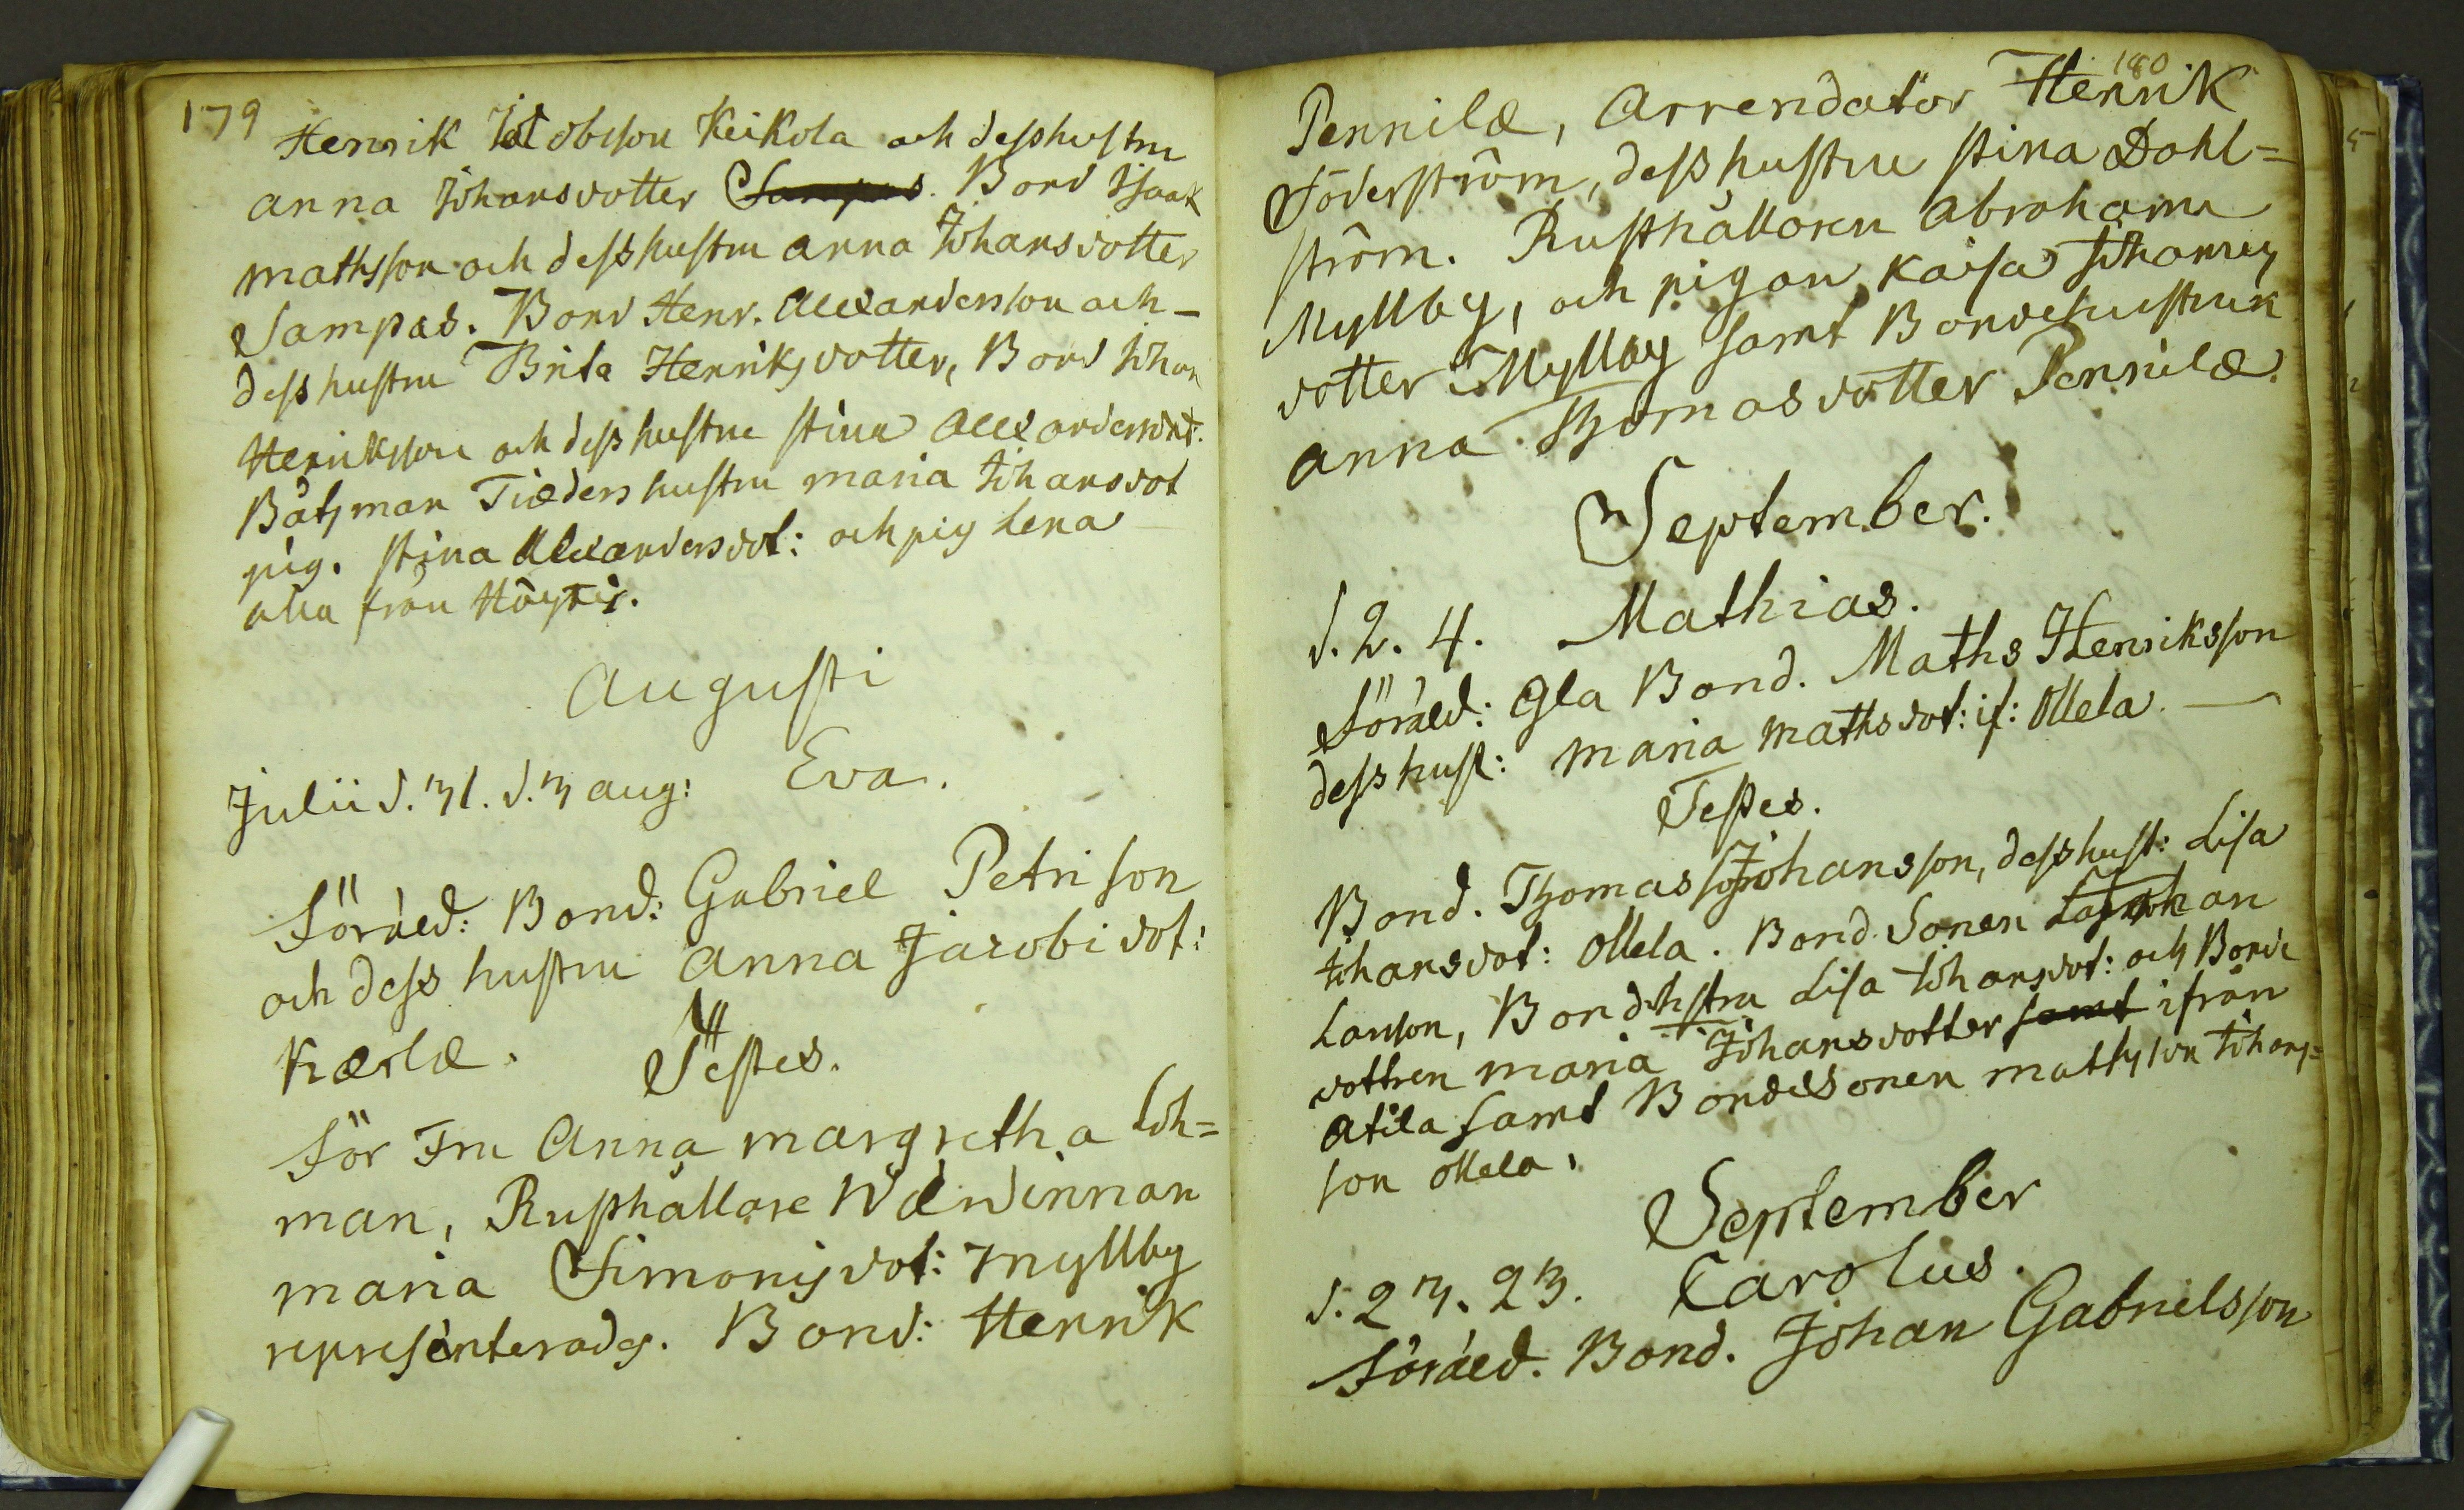 179
Henrik Jacobsson Keikola och desshustru
anna Johansdotter Sampas. Bond Isaak
mathsson och desshustru anna Johansdotter
Sampas. Bond Henr. Alexandersson och -
desshustru Brita Henriksdotter, Bond Johan
Henriksson och desshustru stina Alexandersdot.
Båtsman Tiæders hustru maria Johansdot
pig. stina Alexandersdot: och pig Lena
alla från Höytis.
Augusti
Julii d. 31. d. 3 aug: Eva.
Föräld: Bond: Gabriel Petrison
och dess hustru Anna Jacobi dot:
Kærlæ. Testes.
För Fru Anna margretha Loh=
man, Rusthållare Wærdinnan
maria Simonisdot: Myllby
representerades. Bond: Henrik
180
Pennilæ, Arrendator Henrik
Söderström, desshustru stina Dahl=
ström. Rusthållaren Abraham
Myllby, och pigan Kaisa Johans
dotter Myllby samt Bondehustrun
anna Thomasdotter Pennilæ.
September.
d. 2. 4. Mathias.
Föräld: Gla Bond. Maths Henriksson
desshust: maria mathsdot: if: Ollela. —
Testes.
Bond. Thomas Johansson, desshust: Lisa
Johansdot: Ollela. Bond Sonen Johan
Larsson, Bondhstru Lisa Johansdot: och Bonde
dottren maria Johansdotter samt ifrån
Atila samt Bondesonen Johans=
son Ollela.
September
d. 23. 23. Carolus.
Föräld. Bond. Johan Gabrielsson